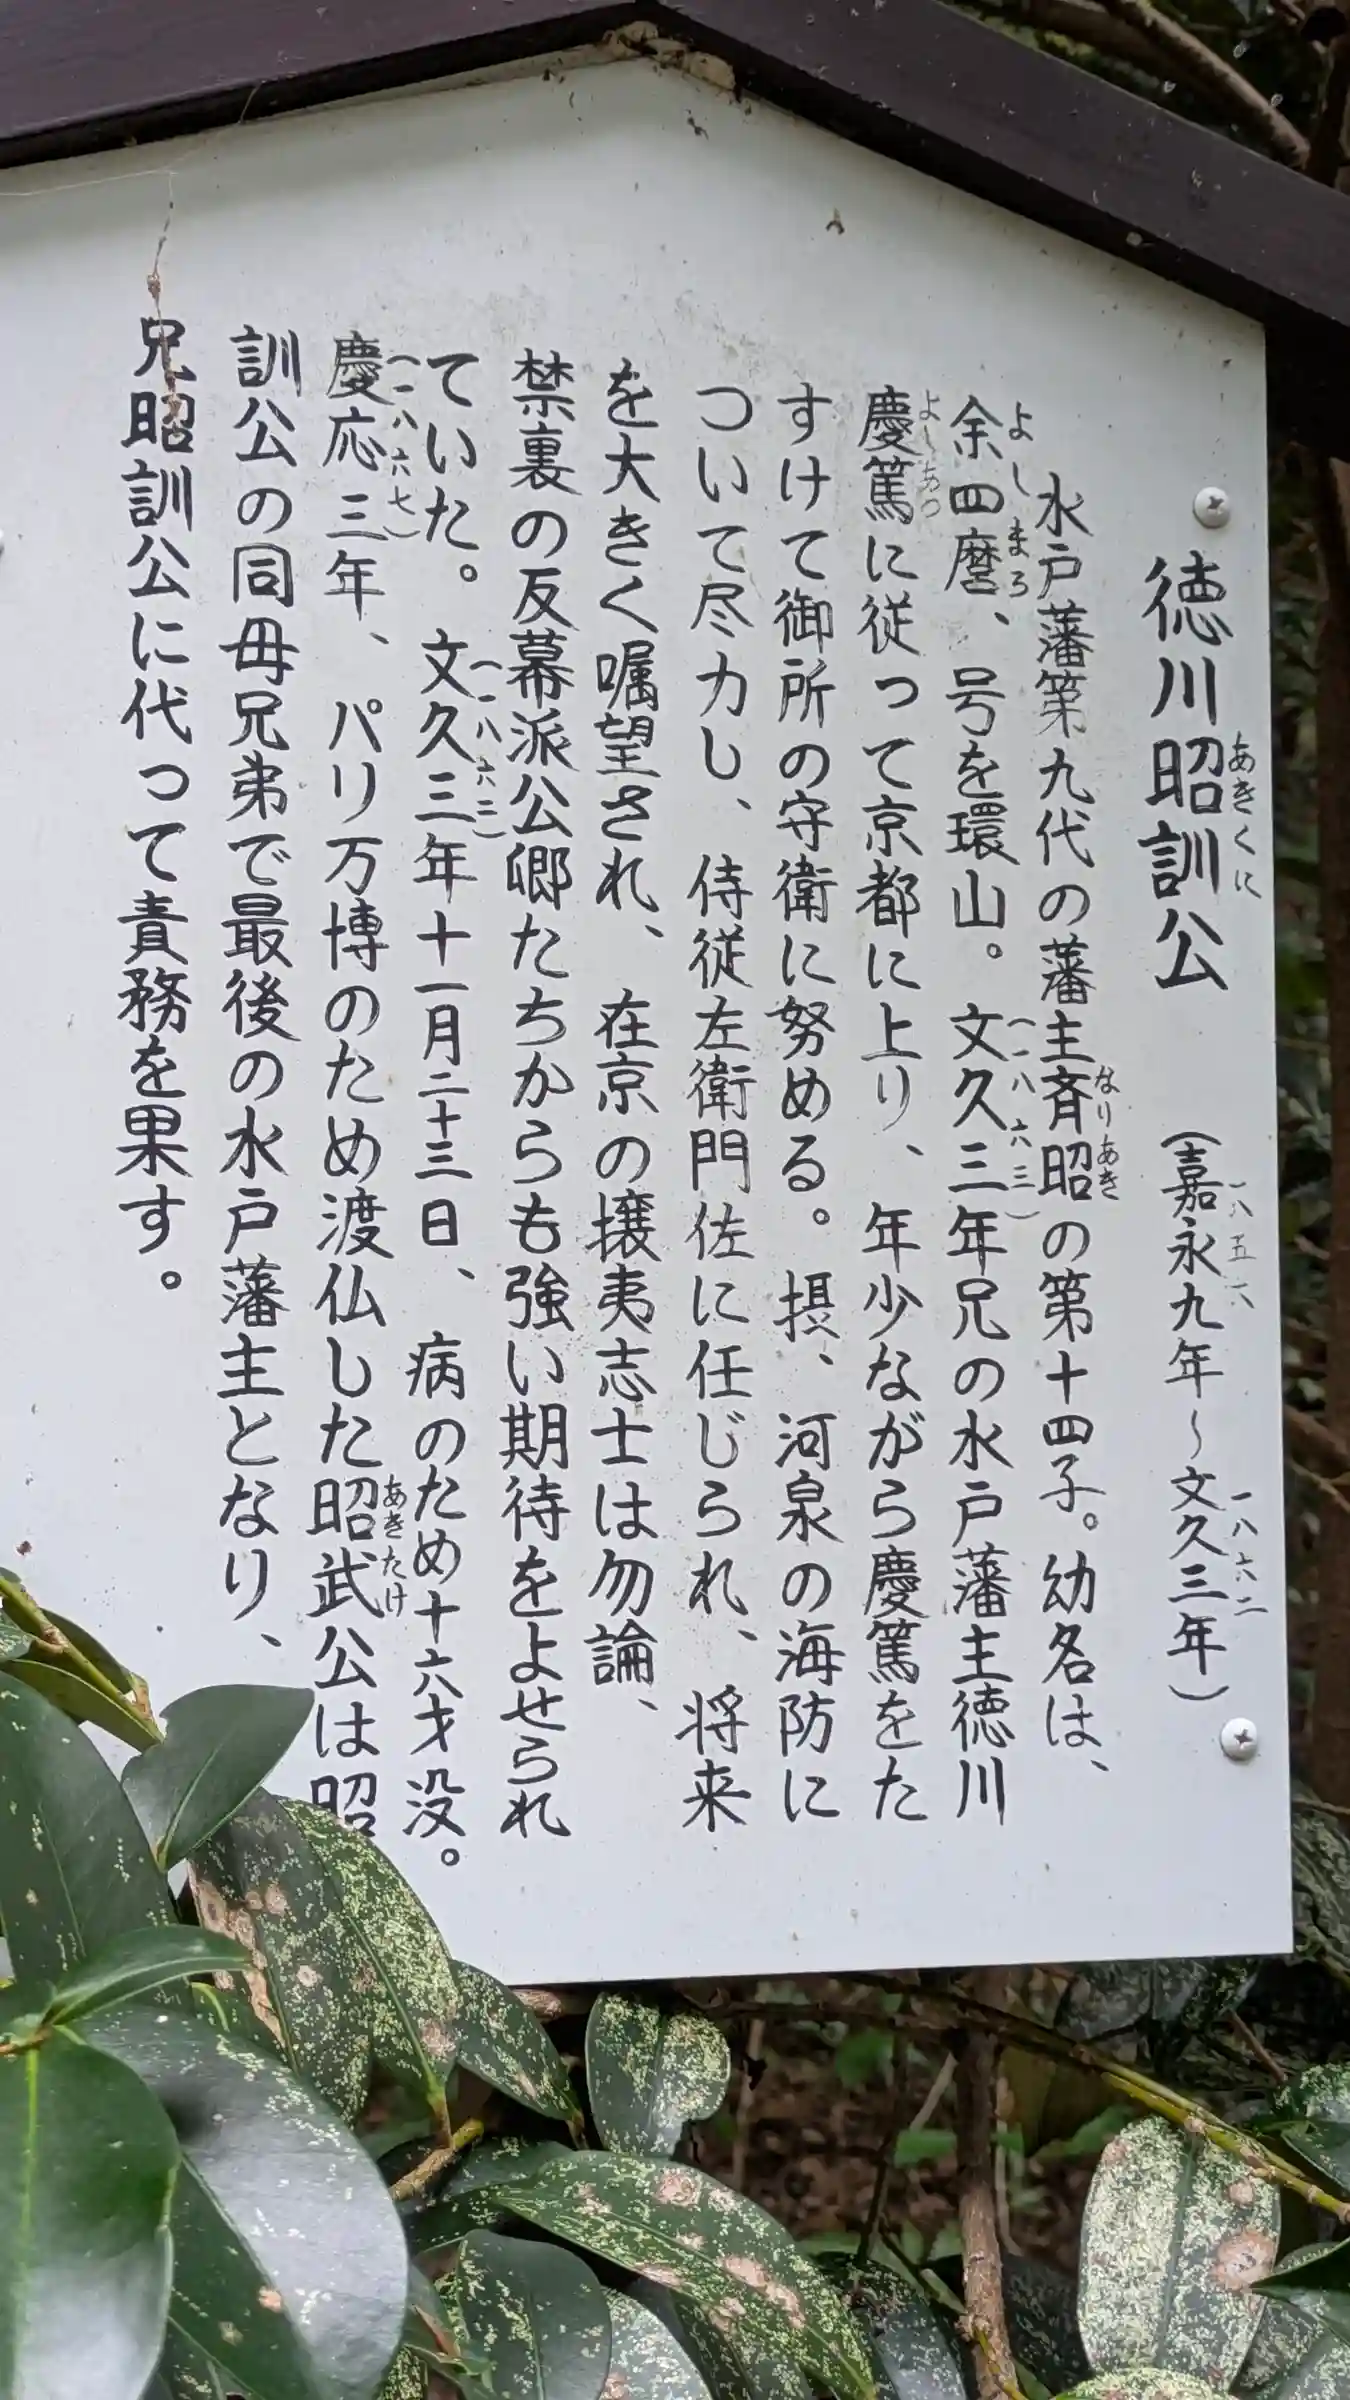 徳川昭訓公 (嘉永九年~文久三年)
あきくに
水戸藩第九代の藩主斉昭の第十四子。幼名は、
なりあき
余四麿、号を環山。文久三年兄の水戸藩主徳川
よしまろ (一八六三)
慶篤に従って京都に上り、年少ながら慶篤をた
すけて御所の守衛に努める。摂、河泉の海防に
ついて尽力し、侍従左衛門佐に任じられ、将来
を大きく嘱望され、在京の攘夷志士は勿論、
禁裏の反幕派公卿たちからも強い期待をよせられ
ていた。文久三年十一月二十三日、病のため十六才没。
慶応三年、パリ万博のため渡仏した昭武公は昭
(一八六七) あきたけ
訓公の同母兄弟で最後の水戸藩主となり、
兄昭訓公に代って責務を果す。